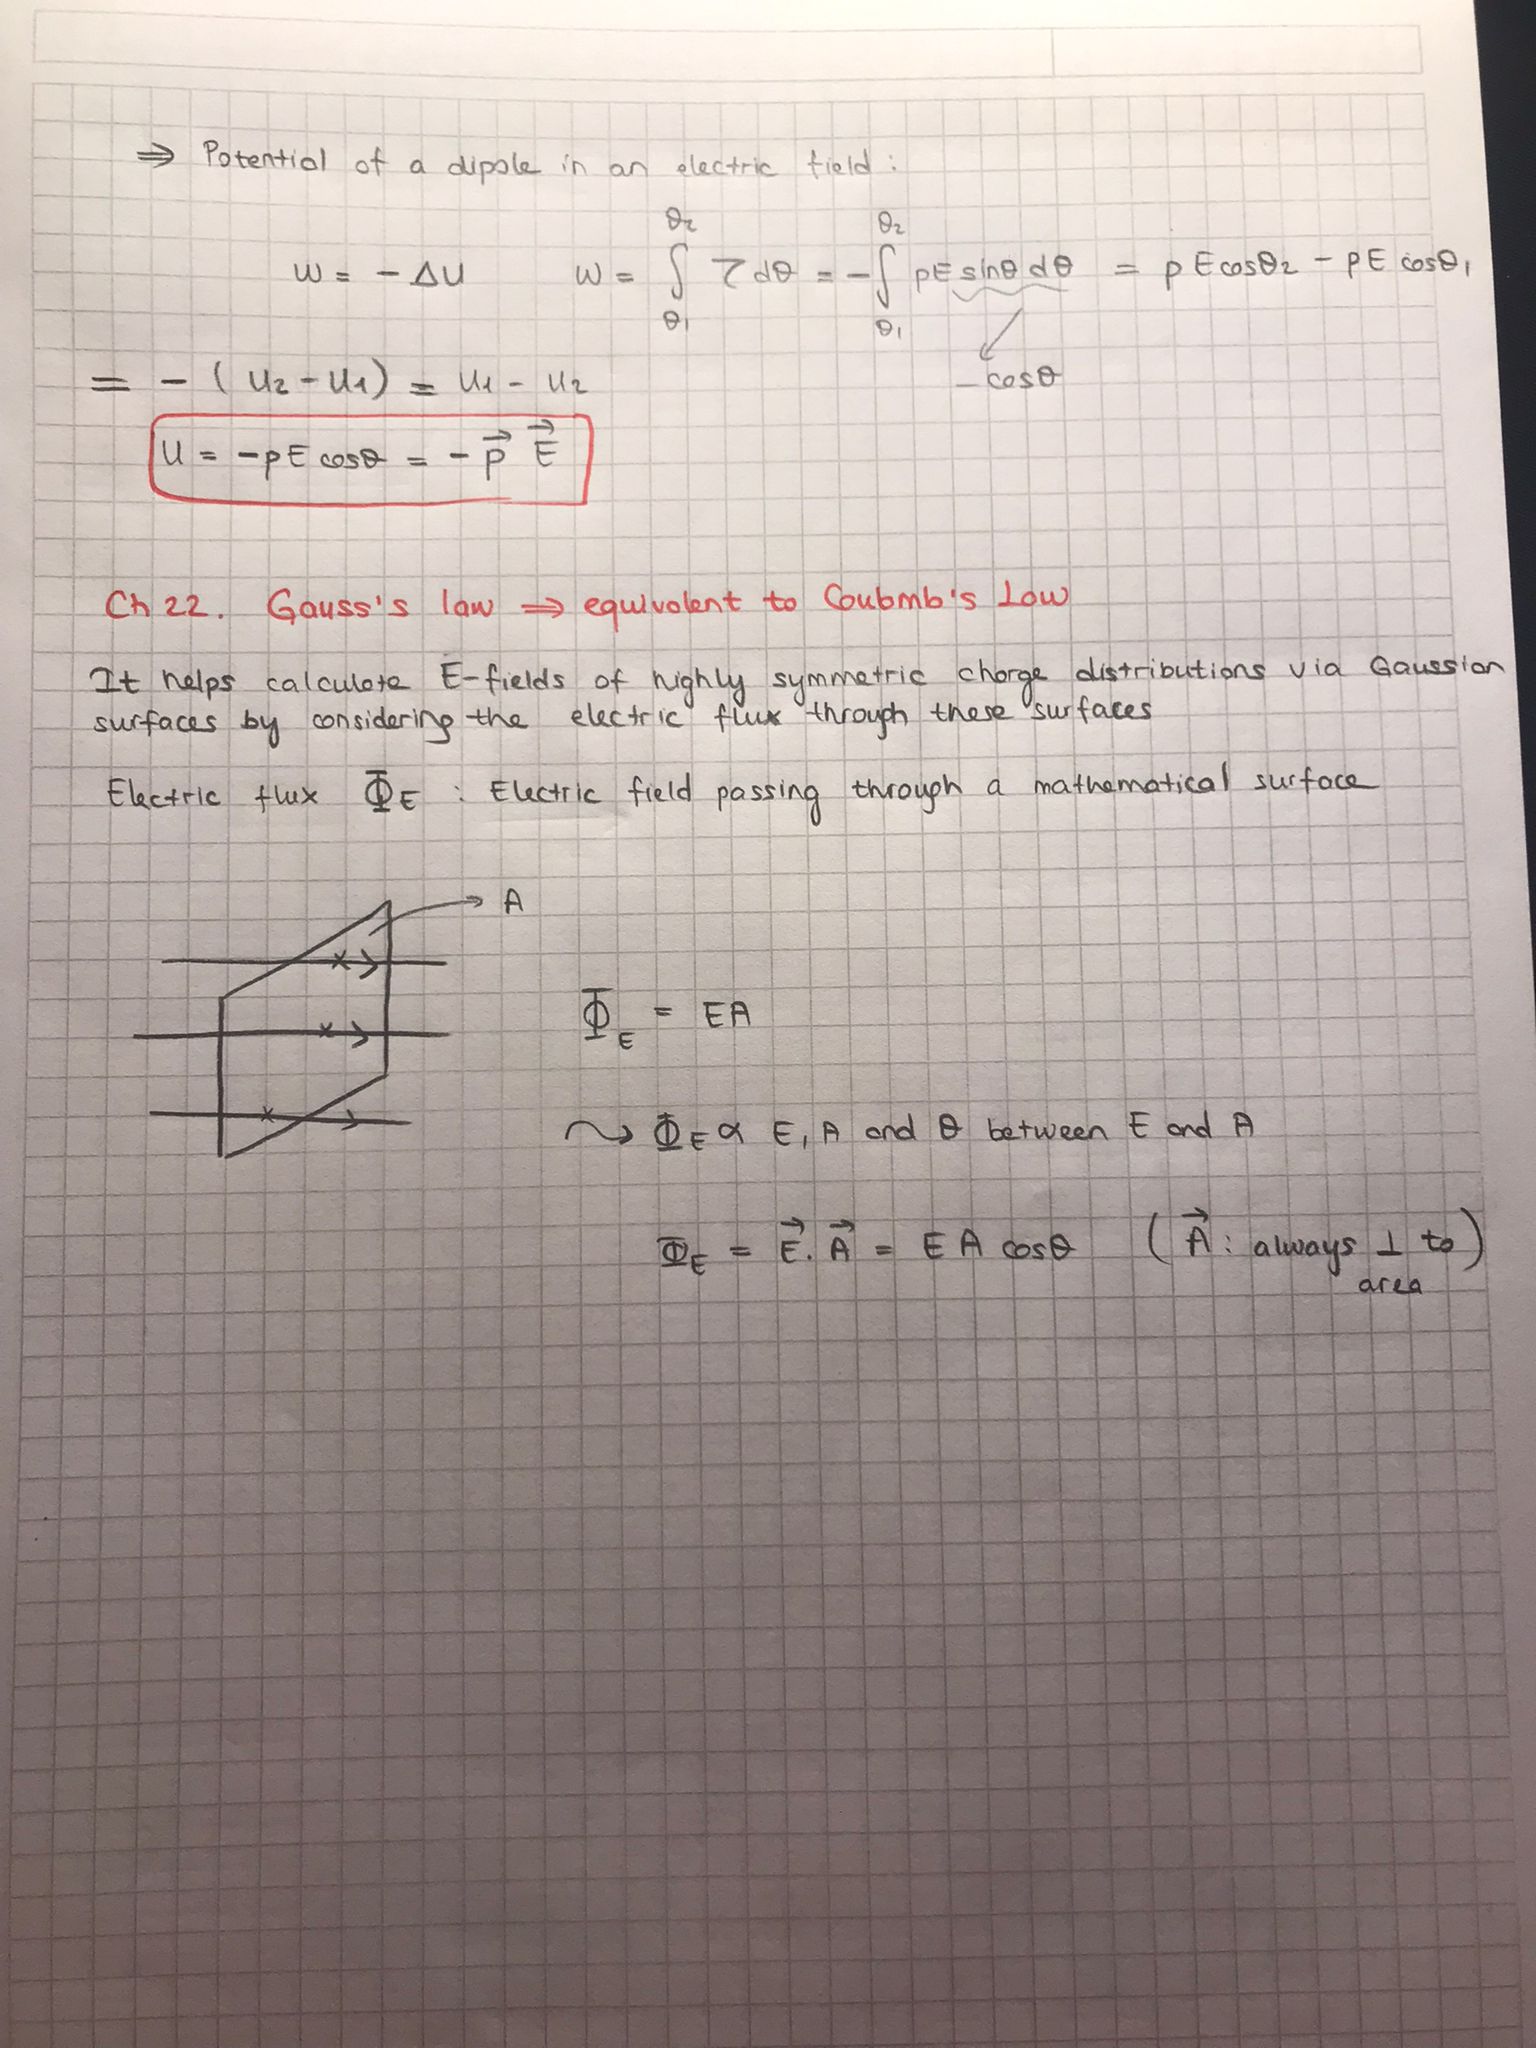 ⇒ Potential of a dipole in an electric field :
W = - ΔU    W = ∫_{θ1}^{θ2} τ dθ = - ∫_{θ1}^{θ2} pE sinθ dθ = p E cosθ2 - pE cosθ1
= - ( U2 - U1 ) = U1 - U2    - cosθ
U = - pE cosθ = - p⃗ E⃗
Ch 22. Gauss's law ⇒ equivalent to Coubmb's Law
It helps calculate E-fields of highly symmetric charge distributions via Gaussian
surfaces by considering the electric flux through these surfaces
Electric flux Φ_E : Electric field passing through a mathematical surface
A
Φ_E = EA
⤳ Φ_E ∝ E, A and θ between E and A
Φ_E = E⃗ . A⃗ = E A cosθ ( A⃗ : always ⊥ to )
area